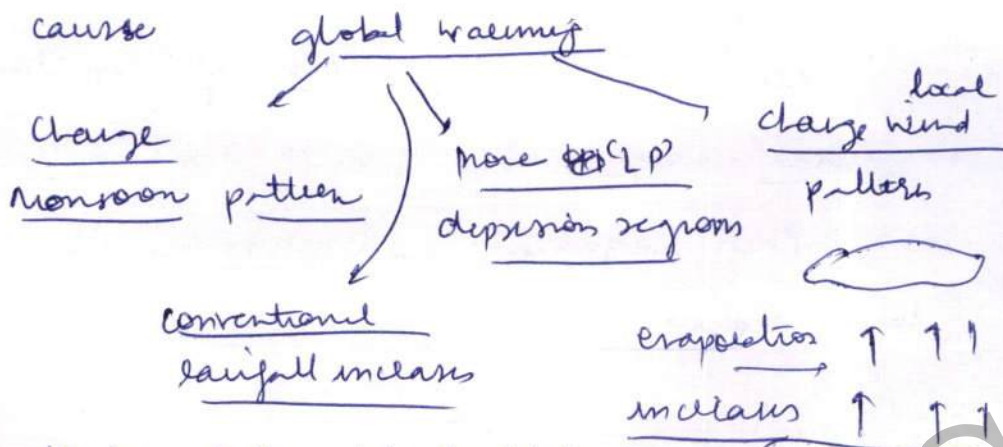 cause global warming
Change Monsoon pattern
more (LP) depression regions
change local wind pattern
conventional rainfall increases
evaporation ↑ ↑ ↑
increases ↑ ↑ ↑